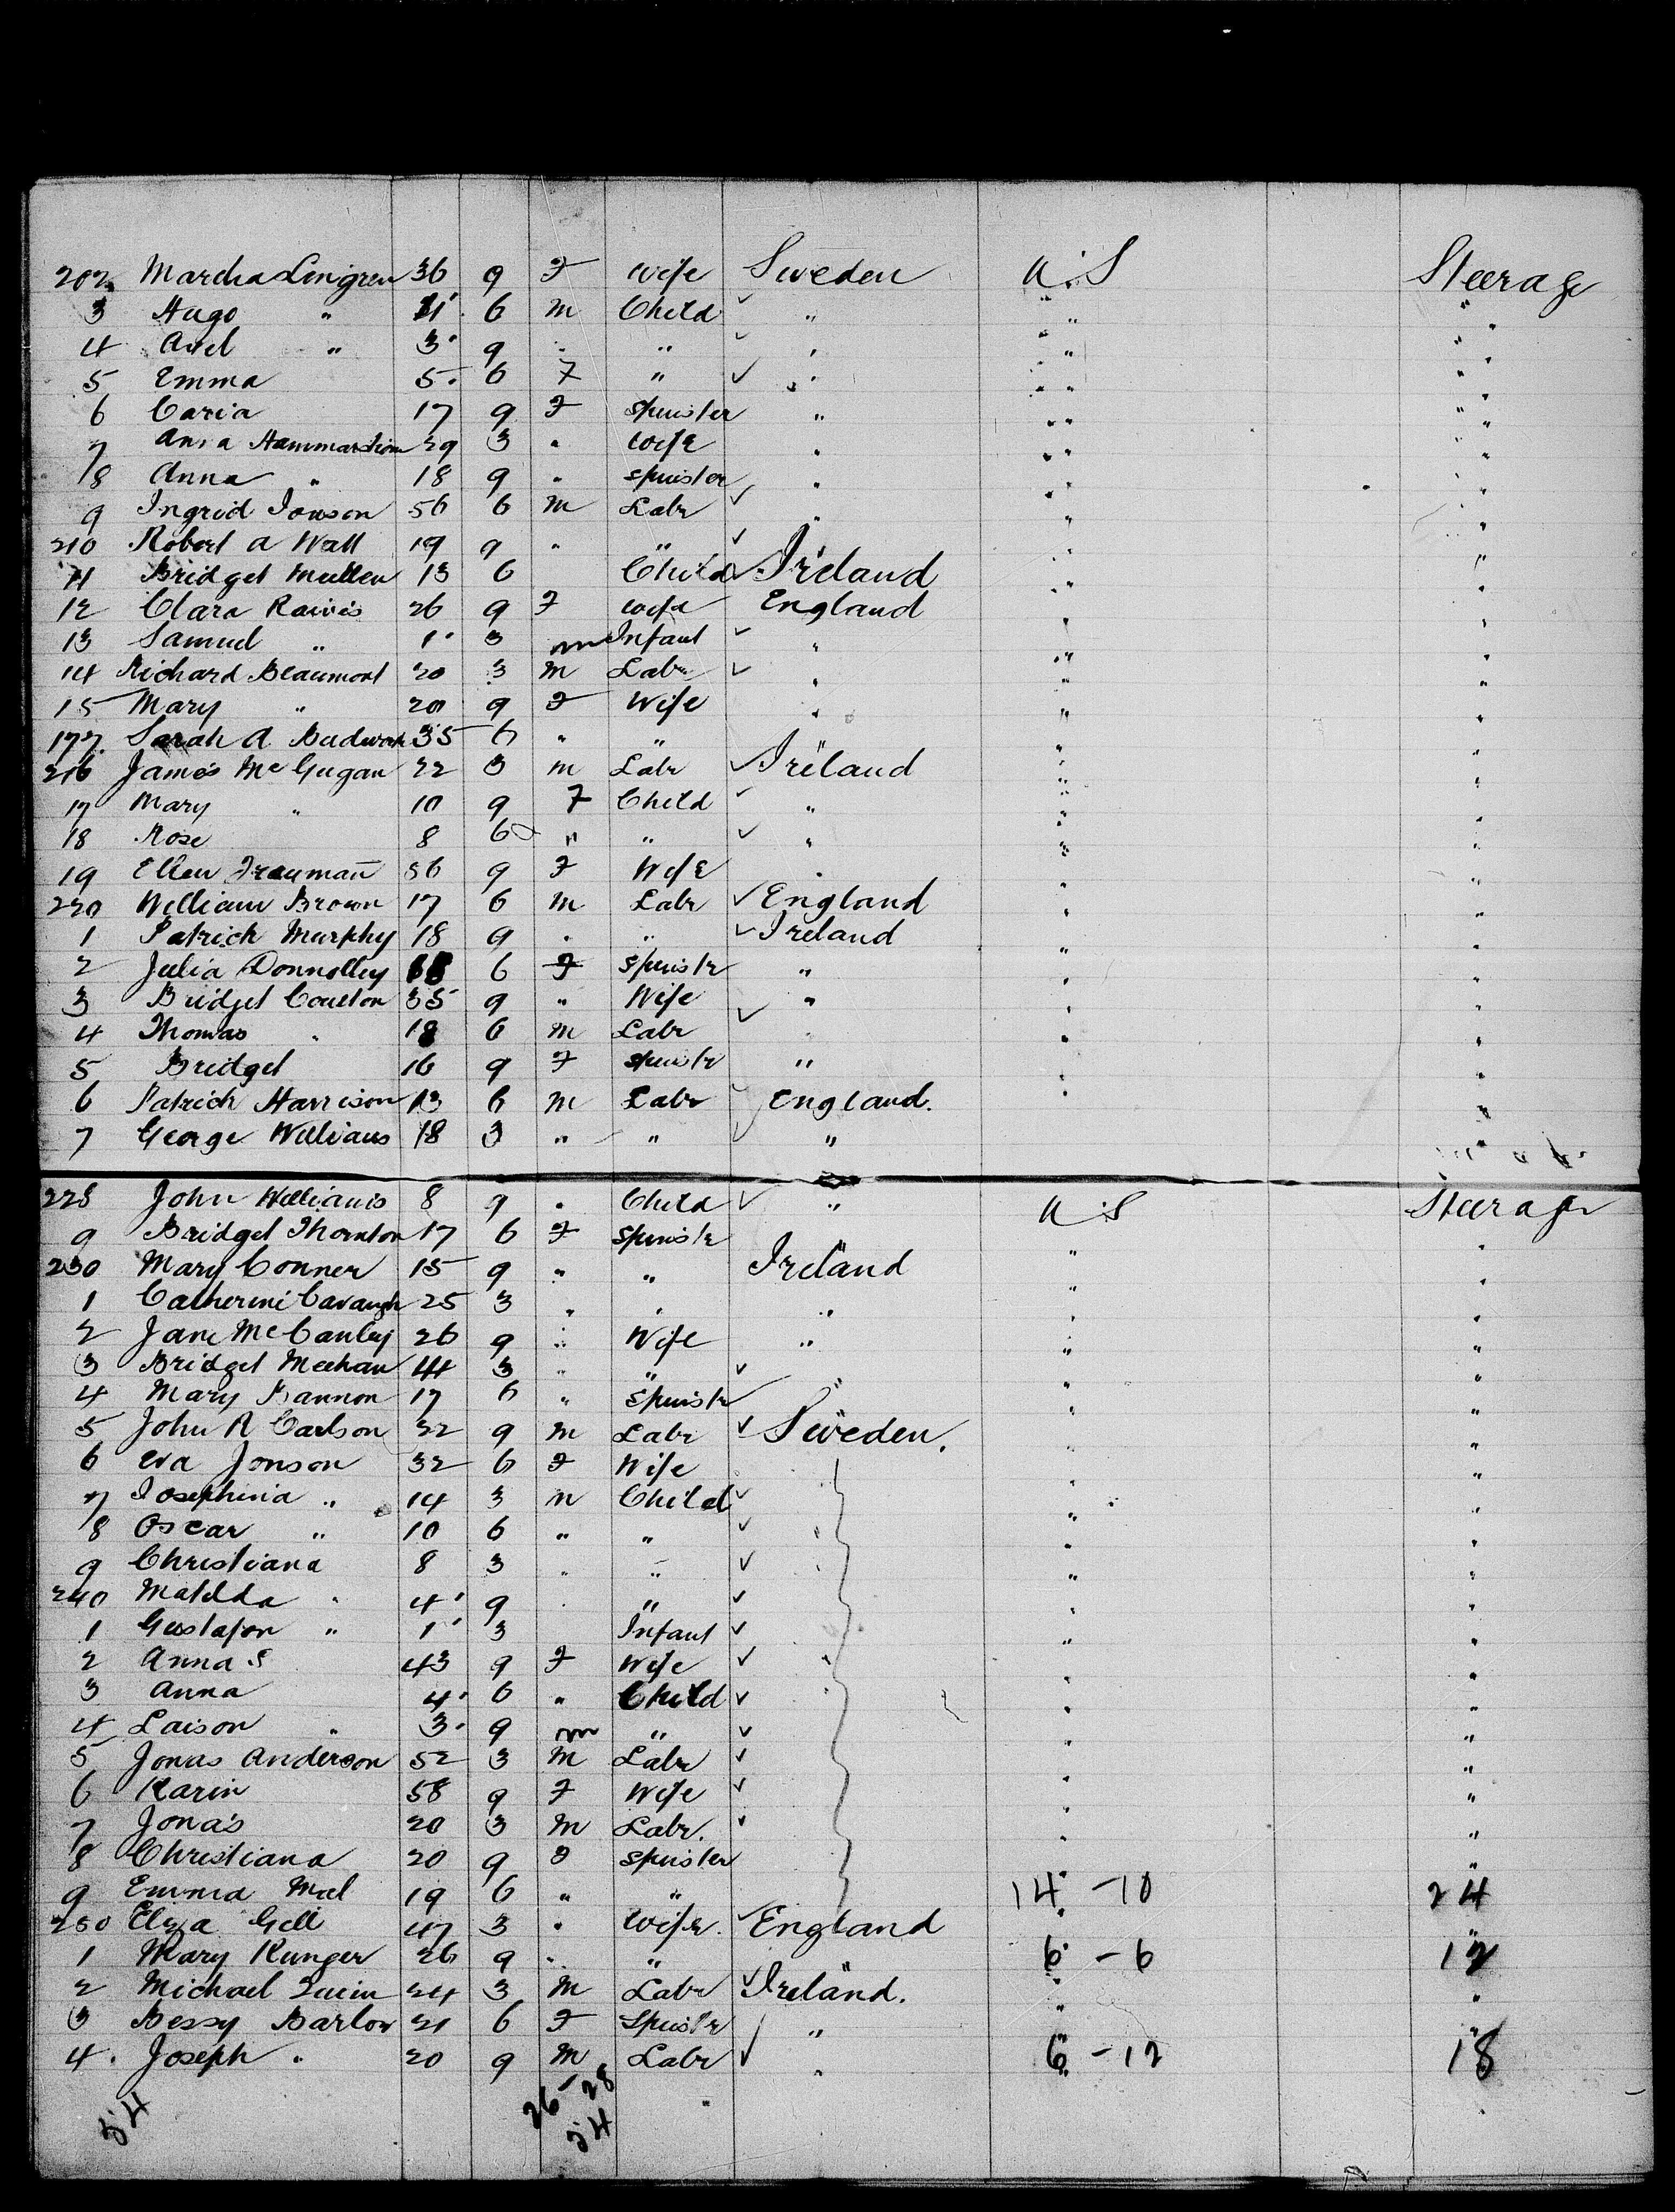 202 Martha Lingren 36 9 F Wife Sweden U.S Steerage
3 Hugo " 11 6 M Child " " "
4 Axel " 3 9 " " " " "
5 Emma 5 6 F " " " "
6 Caria 17 9 F Spinster " " "
7 Anna Hammarstrom 29 3 " Wife " " "
8 Anna " 18 9 " Spinster " " "
9 Ingrid Jonson 56 6 M Labr " " "
210 Robert A Wall 19 9 " " " " "
11 Bridget Mullen 13 6 Child Ireland " "
12 Clara Raives 26 9 F Wife England " "
13 Samuel " 1 3 m Infant " " "
14 Richard Beaumont 20 3 M Labr " " "
15 Mary " 20 9 F Wife " " "
177. Sarah A Budworth 35 6 " " " " "
216 James McGugan 22 3 M Labr Ireland " "
17 Mary " 10 9 F Child " " "
18 Rose 8 6 " " " " "
19 Ellen Trauman 56 9 F Wife " " "
220 William Brown 17 6 M Labr England " "
1 Patrick Murphy 18 9 " " Ireland " "
2 Julia Donnolley 6 F Spinstr " " "
3 Bridget Coulton 35 9 " Wife " " "
4 Thomas " 18 6 M Labr " " "
5 Bridget 16 9 F Spinstr " " "
6 Patrick Harrison 13 6 M Labr England. " "
7 George Williams 18 3 " " " "
228 John Williams 8 9 " Child " U.S Steerage
9 Bridget Thornton 17 6 F Spinstr " " "
230 Mary Conner 15 9 " " Ireland " "
1 Catherine Cavaugh 25 3 " " " " "
2 Jane McCauley 26 9 " Wife " " "
3 Bridget Meehan 44 3 " " " "
4 Mary Bannon 17 6 " Spinstr " " "
5 John A Carlson 32 9 M Labr Sweden. " "
6 Eva Jonson 32 6 F Wife " "
7 Josephina " 14 3 " Child " "
8 Oscar " 10 6 " " " " "
9 Christiana 8 3 " " " " "
240 Matilda " 4 9 " " " "
1 Gustafon " 1 3 Infant " "
2 Anna S 43 9 F Wife " " "
3 Anna 4 6 " Child " "
4 Laison " 3 9 m " " "
5 Jonas Anderson 52 3 M Labr " "
6 Karin 58 9 F Wife " "
7 Jonas 20 3 M Labr. " "
8 Christiana 20 9 F Spinster " "
9 Emma 19 6 " " 14 - 10 24
250 Eliza Gell 47 3 " Wife. England "
1 Mary Kunger 26 9 " " " 6 - 6 12
2 Michael Quin 24 3 M Labr Ireland. " "
3 Bessy Barlow 21 6 F Spinstr " " "
4. Joseph " 20 9 M Labr " 6 - 12 18
54 26-28 "
54